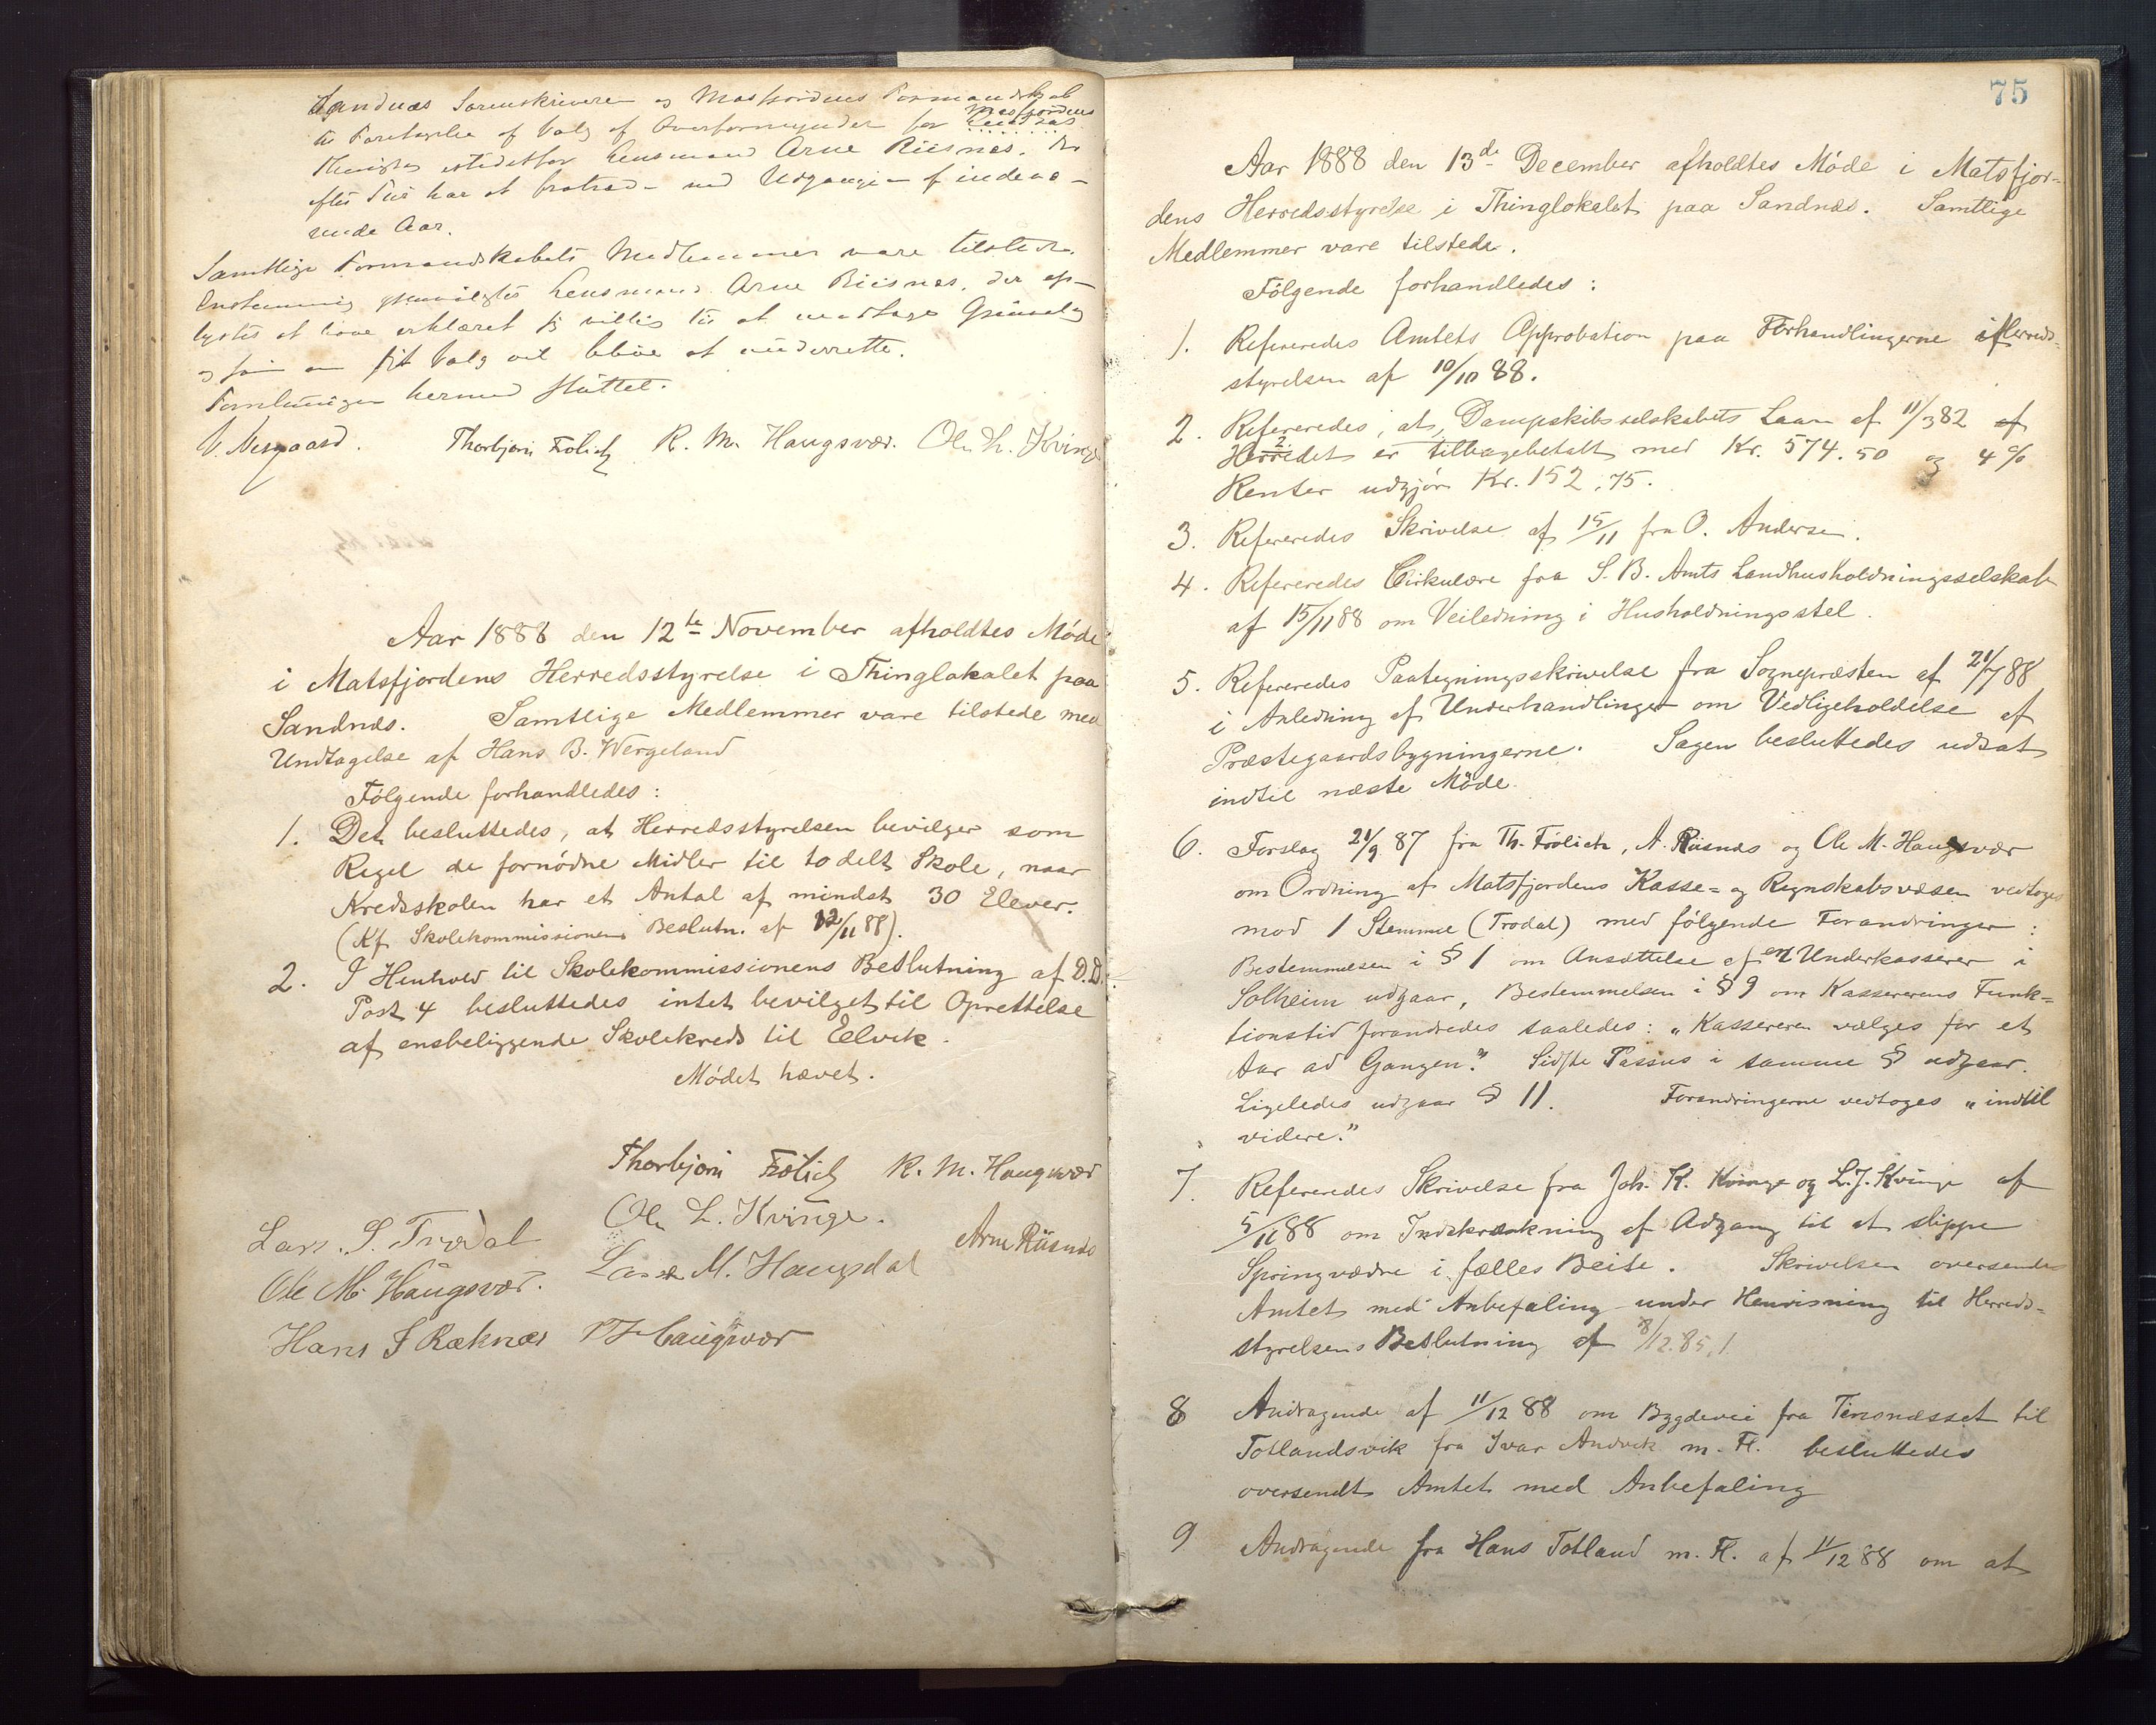 Sandnæs Sorenskriveren og Masfjordens Formandskab
til Foretagelse af Valg af Overformynder for Masfjordens
istedetfor Lensmand Arne Riisnæs, der
efter Tur har at fratræde ved Udgangen af indevæ-
rende Aar.
Samtlige Formandskabets Medlemmer vare tilstede.
Enstemmig gjenvalgtes Lensmand Arne Riisnæs, der op-
lystes at have erklæret sig villig til at modtage Gjenvalg
og som om sit Valg vil blive at underrette.
Forretningen hermed sluttet.
V. Nesgaard. Thorbjørn Frølich R. M. Haugsvær. Ole L. Kvinge
Aar 1888 den 12te November afholdtes Møde
i Matsfjordens Herredsstyrelse i Thinglokalet paa
Sandnæs. Samtlige Medlemmer vare tilstede med
Undtagelse af Hans B. Wergeland
Følgende forhandledes:
1. Det besluttedes, at Herredsstyrelsen bevilger som
Regel de fornødne Midler til todelt Skole, naar
Kredsskolen har et Antal af mindst 30 Elever.
(Kf. Skolekommissionens Beslutn. af 12/11 88).
2. I Henhold til Skolekommissionens Beslutning af D.D.
Post 4 besluttedes intet bevilget til Oprettelse
af ensbeliggende Skolekreds til Eelvik.
Mødet hævet.
Thorbjørn Frølich R. M. Haugsvær
Ole L. Kvinge.
Lars. S. Trodal Arne Riisnæs
Lasse M. Haugsdal
Ole M. Haugsvær.
Hans J Ræknæs Haugsvær
75
Aar 1888 den 13de December afholdtes Møde i Matsfjor-
dens Herredsstyrelse i Thinglokalet paa Sandnæs. Samtlige
Medlemmer vare tilstede.
Følgende forhandledes:
1. Refereredes Amtets Approbation paa Forhandlingerne i Herreds-
styrelsen af 10/10 88.
2. Refereredes, at Dampskibsselskabets Laan af 11/3 82 af
Herredet er tilbagebetalt med Kr. 574.50 og 4 %
Renter udgjør Kr. 152.75.
3. Refereredes Skrivelse af 15/11 fra O. Andersen.
4. Refereredes Cirkulære fra S. B. Amts Landhusholdningsselskab
af 15/11 88 om Veiledning i Husholdningsstel.
5. Refereredes Paategningsskrivelse fra Sognepræsten af 21/7 88
i Anledning af Underhandlinger om Vedligeholdelse af
Præstegaardsbygningerne. Sagen besluttedes udsat
indtil næste Møde.
6. Forslag 21/9 87 fra Th. Frølich, A. Riisnæs og Ole M. Haugsvær
om Ordning af Matsfjordens Kasse- og Regnskabsvæsen vedtoges
mod 1 Stemme (Trodal) med følgende Forandringer:
Bestemmelsen i § 1 om Ansættelse af en Underkasserer i
Solheim udgaar, Bestemmelsen i § 9 om Kassererens Funk-
tionstid forandredes saaledes: "Kassereren vælges for et
Aar ad Gangen". Sidste Passus i samme § udgaar.
Ligeledes udgaar § 11. Forandringerne vedtoges "indtil
videre."
7. Refereredes Skrivelse fra Joh. K. Kvinge og L. J. Kvinge af
5/11 88 om Indskrænkning af Adgang til at slippe
Springvædre i fælles Beite. Skrivelsen oversendes
Amtet med Anbefaling under Henvisning til Herreds-
styrelsens Beslutning af 8/12.85,1
8 Andragende af 11/12 88 om Bygdevei fra Tirsnæsset til
Totlandsvik fra Ivar Andvik m. Fl. besluttedes
oversendt Amtet med Anbefaling
9 Andragende fra Hans Totland m. Fl. af 11/12 88 om at